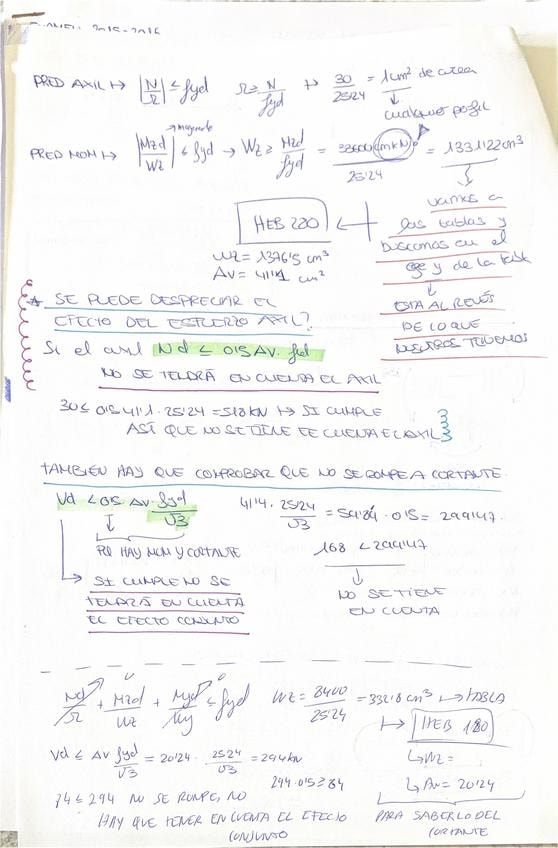 EXAMEN 2015-2016
PRED AXIL ↦ |N/Ω| ≤ fyd Ω ≥ N/fyd ↦ 30/25'24 = 1 cm² de area
↓
cualquier perfil
→ mayorado
PRED MOM ↦ |Mzd/Wz| ≤ fyd → Wz ≥ Mzd/fyd = 33600 (cm kN)/25'24 = 1331'22 cm³
vamos a
las tablas y
buscamos en el
eje y de la tabla
↓
ESTA AL REVÉS
DE LO QUE
NOSOTROS TENEMOS
HEB 220
Wz = 1376'5 cm³
Av = 41'1 cm²
* SE PUEDE DESPRECIAR EL
EFECTO DEL ESFUERZO AXIL?
Si el axil Nd ≤ 0'5 Av. fyd
NO SE TENDRÁ EN CUENTA EL AXIL
30 ≤ 0'5 · 41'1 · 25'24 = 518 kN ↦ SI CUMPLE
ASÍ QUE NO SE TIENE EE CUENTA EL AXIL
TAMBIÉN HAY QUE COMPROBAR QUE NO SE ROMPE A CORTANTE.
Vd ≤ 0'5 · Av · fyd/√3
↓
PQ HAY MOM Y CORTANTE
→ SI CUMPLE NO SE
TENDRÁ EN CUENTA
EL EFECTO CONJUNTO
41'4 · 25'24/√3 = 598'84 · 0'5 = 299'47.
168 < 299'47
↓
NO SE TIENE
EN CUENTA
Nd/Ω + Mzd/Wz + Myd/Wy ≤ fyd Wz = 8400/25'24 = 332'8 cm³ ↦ TABLA
↦ HEB 180
↳ Wz =
↳ Av = 20'24
PARA SABERLO DEL
CORTANTE
Vd ≤ Av fyd/√3 = 20'24 · 25'24/√3 = 294 kN
294 · 0'5 ≥ 84
84 ≤ 294 NO SE ROMPE, NO
HAY QUE TENER EN CUENTA EL EFECTO
CONJUNTO